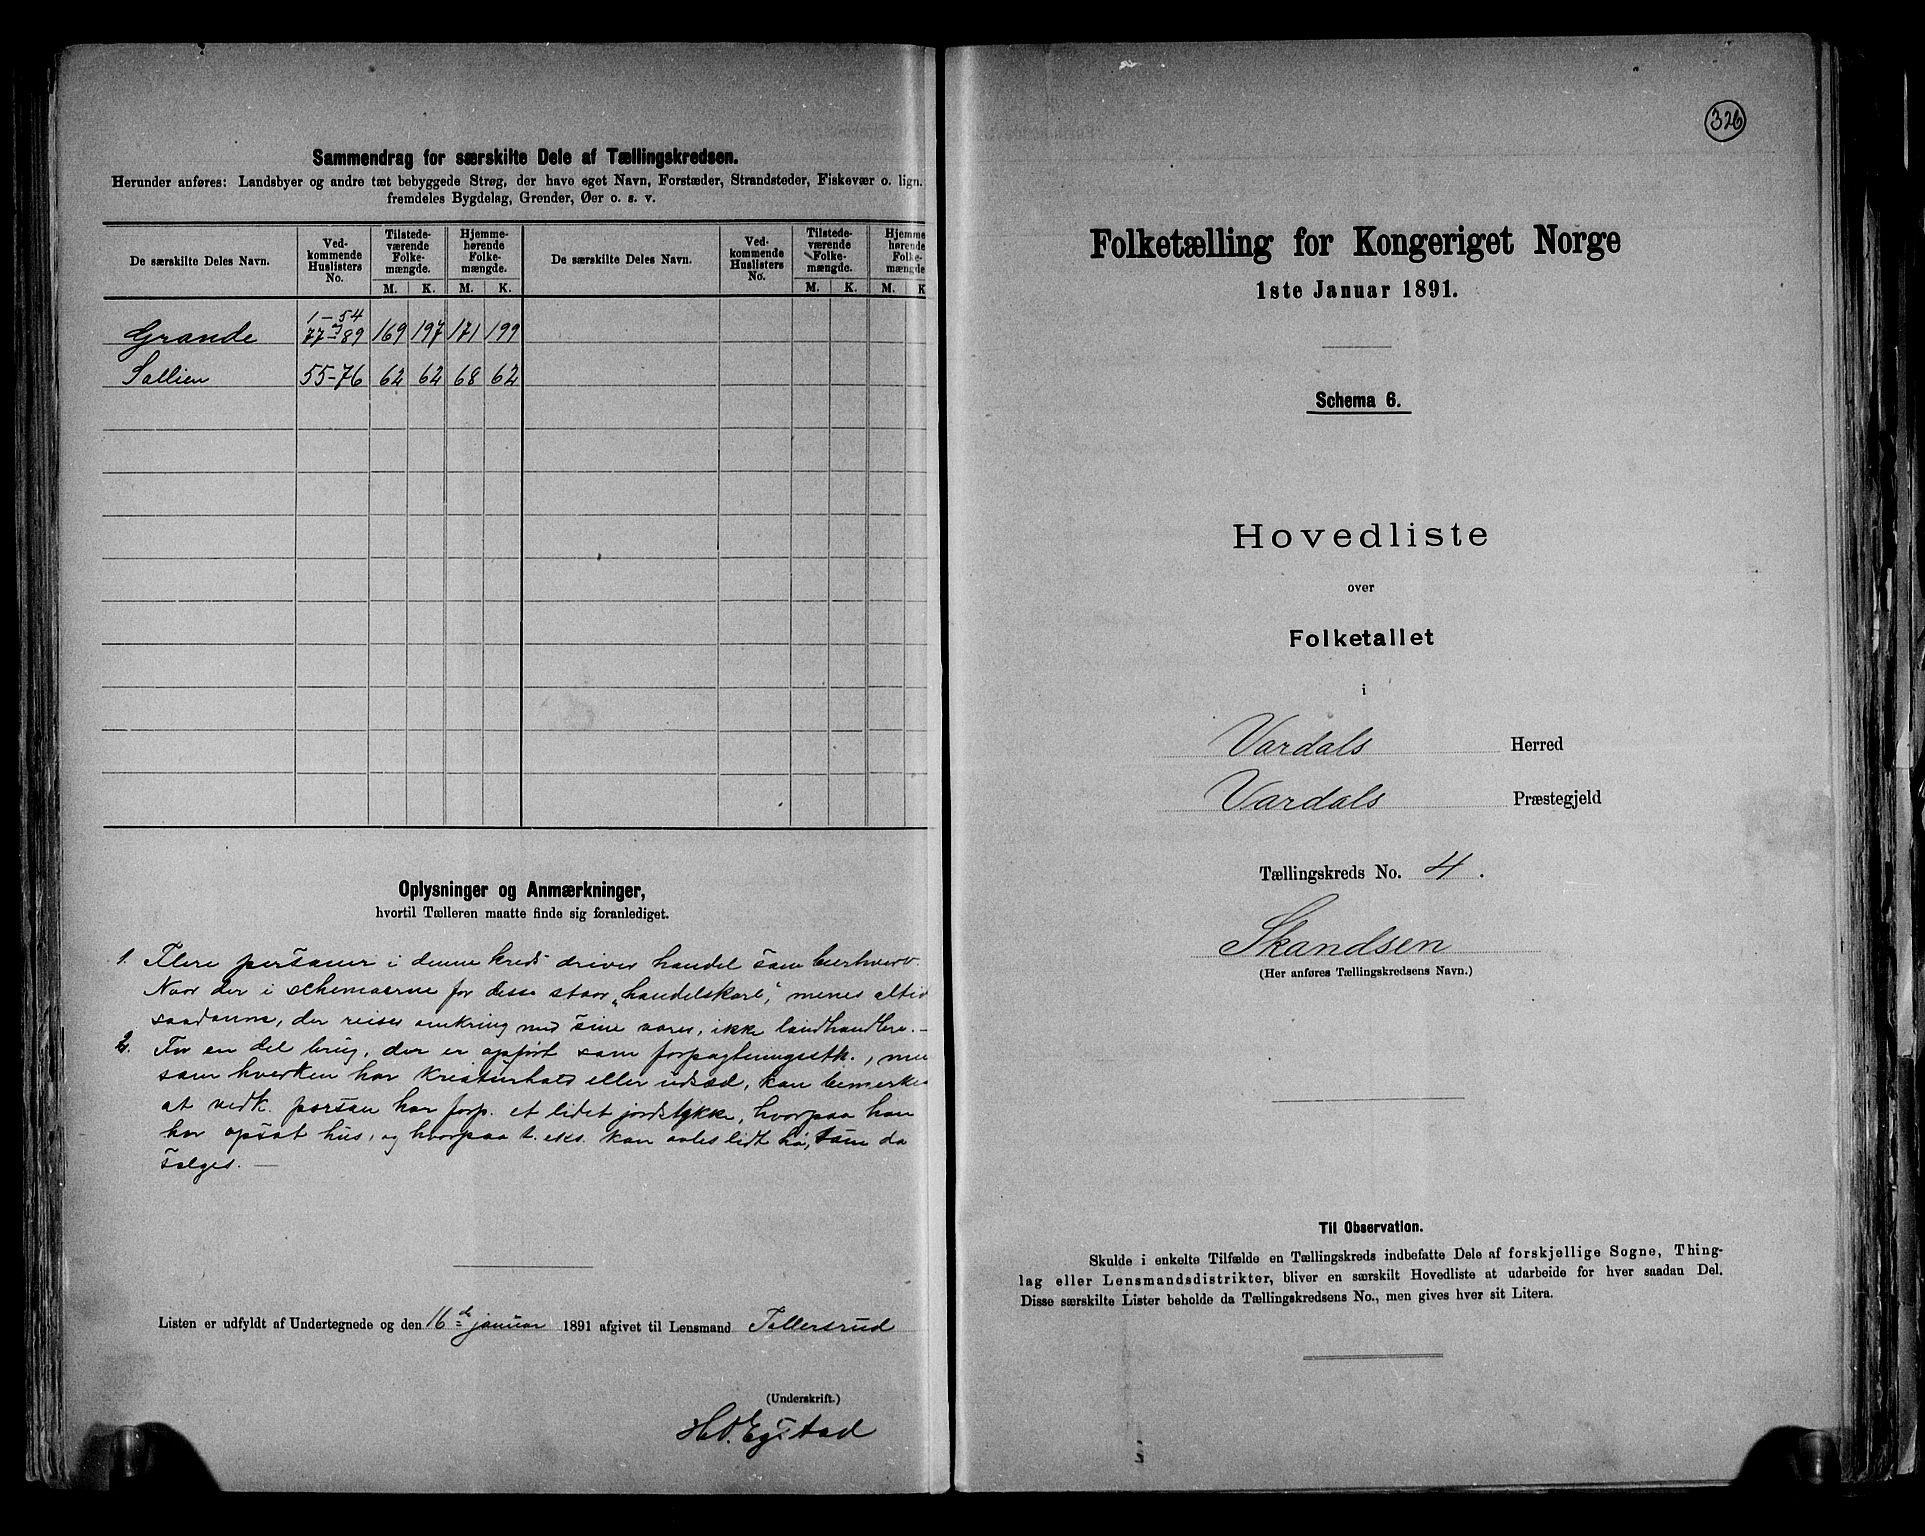 Sammendrag for særskilte Dele af Tællingskredsen.
Herunder anføres: Landsbyer og andre tæt bebyggede Strøg, der have eget Navn, Forstæder, Strandsteder, Fiskevær o. lign.
fremdeles Bygdelag, Grender, Øer o. s. v.
De særskilte Deles Navn. Ved-kommende Huslisters No. Tilstede-værende Folke-mængde. Hjemme-hørende Folke-mængde. De særskilte Deles Navn. Ved-kommende Huslisters No. Tilstede-værende Folke-mængde. Hjemme hørende Folke-mængde
M. K. M. K. M. K. M. K
1-54
Grande 77-89 169 197 171 199
Sollien 55-76 62 62 68 62
Oplysninger og Anmærkninger,
hvortil Tælleren maatte finde sig foranlediget.
1. Flere personer i denne kreds driver handel som bierhverv.
Naar der i schemaerne for disse staar "handelskarl", menes altid
saadanne, der reiser omkring med sine varer, ikke landhandlere. —
2. For en del brug, der er opført som forpagtningsstk.,
som hverken har kreaturhold eller udsæd, kan bemerkes
at vedk. person har forp. et lidet jordstykke, hvorpaa han
har opsat hus, og hvorpaa t. eks. kan avles lidt hø, som da
sælges. —
Listen er udfyldt af Undertegnede og den 16de januar 1891 afgivet til Lensmand Tollersrud
(Underskrift.)
H. O. Egstad
326
Folketælling for Kongeriget Norge
1ste Januar 1891.
Schema 6.
Hovedliste
over
Folketallet
i
Vardals Herred
Vardals Præstegjeld
Tællingskreds No. 4.
Skandsen
(Her anføres Tællingskredsens Navn.)
Til Observation.
Skulde i enkelte Tilfælde en Tællingskreds indbefatte Dele af forskjellige Sogne, Thing-
lag eller Lensmandsdistrikter, bliver en særskilt Hovedliste at udarbeide for hver saadan Del.
Disse særskilte Lister beholde da Tællingskredsens No., men gives hver sit Litera.